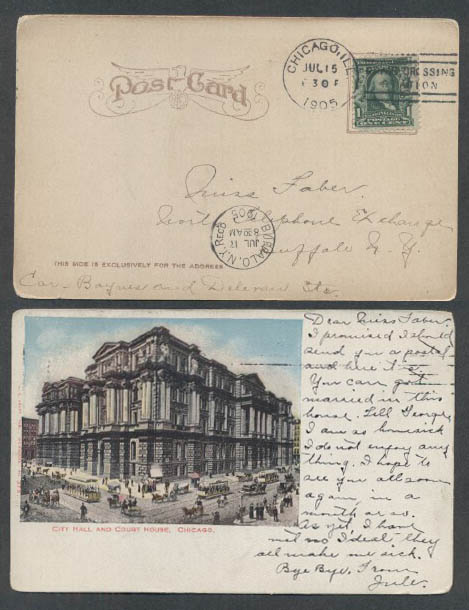 Post Card
CHICAGO, ILL.
JUL 15
1905
1 POSTAGE 1
ONE CENT
Miss Faber.
Telephone Exchange
Buffalo N. Y.
BUFFALO, N.Y. REC'D
JUL 17
8:30AM
1905
THIS SIDE IS EXCLUSIVELY FOR THE ADDRESS.
Cor. Baynes and Delevan Sts.
Dear Miss Faber.
I promised I should
send you a postal
and here it is.
You can get
married in this
house. Tell George
I am so homesick
I do not enjoy any
thing. I hope to
see you all soon
again in a
month or so.
As yet I have
met no Ideal they
all make me sick.
Bye Bye. From
Jule.
CITY HALL AND COURT HOUSE, CHICAGO.